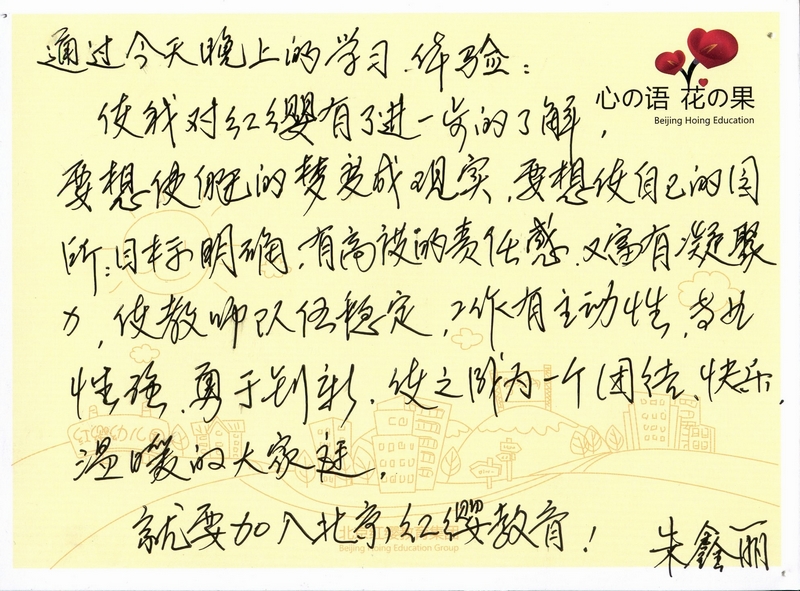 通过今天晚上的学习、体验：
心の语 花の果
Beijing Hoing Education
使我对红缨有了进一步的了解，
要想使自己的梦变成现实，要想使自己的园
所：目标明确，有高度的责任感，又富有凝聚
力，使教师队伍稳定，工作有主动性、
性强、勇于创新，使之成为一个团结、快乐、
温暖的大家庭，
就要加入北京红缨教育！
Beijing Hoing Education Group
朱鑫丽